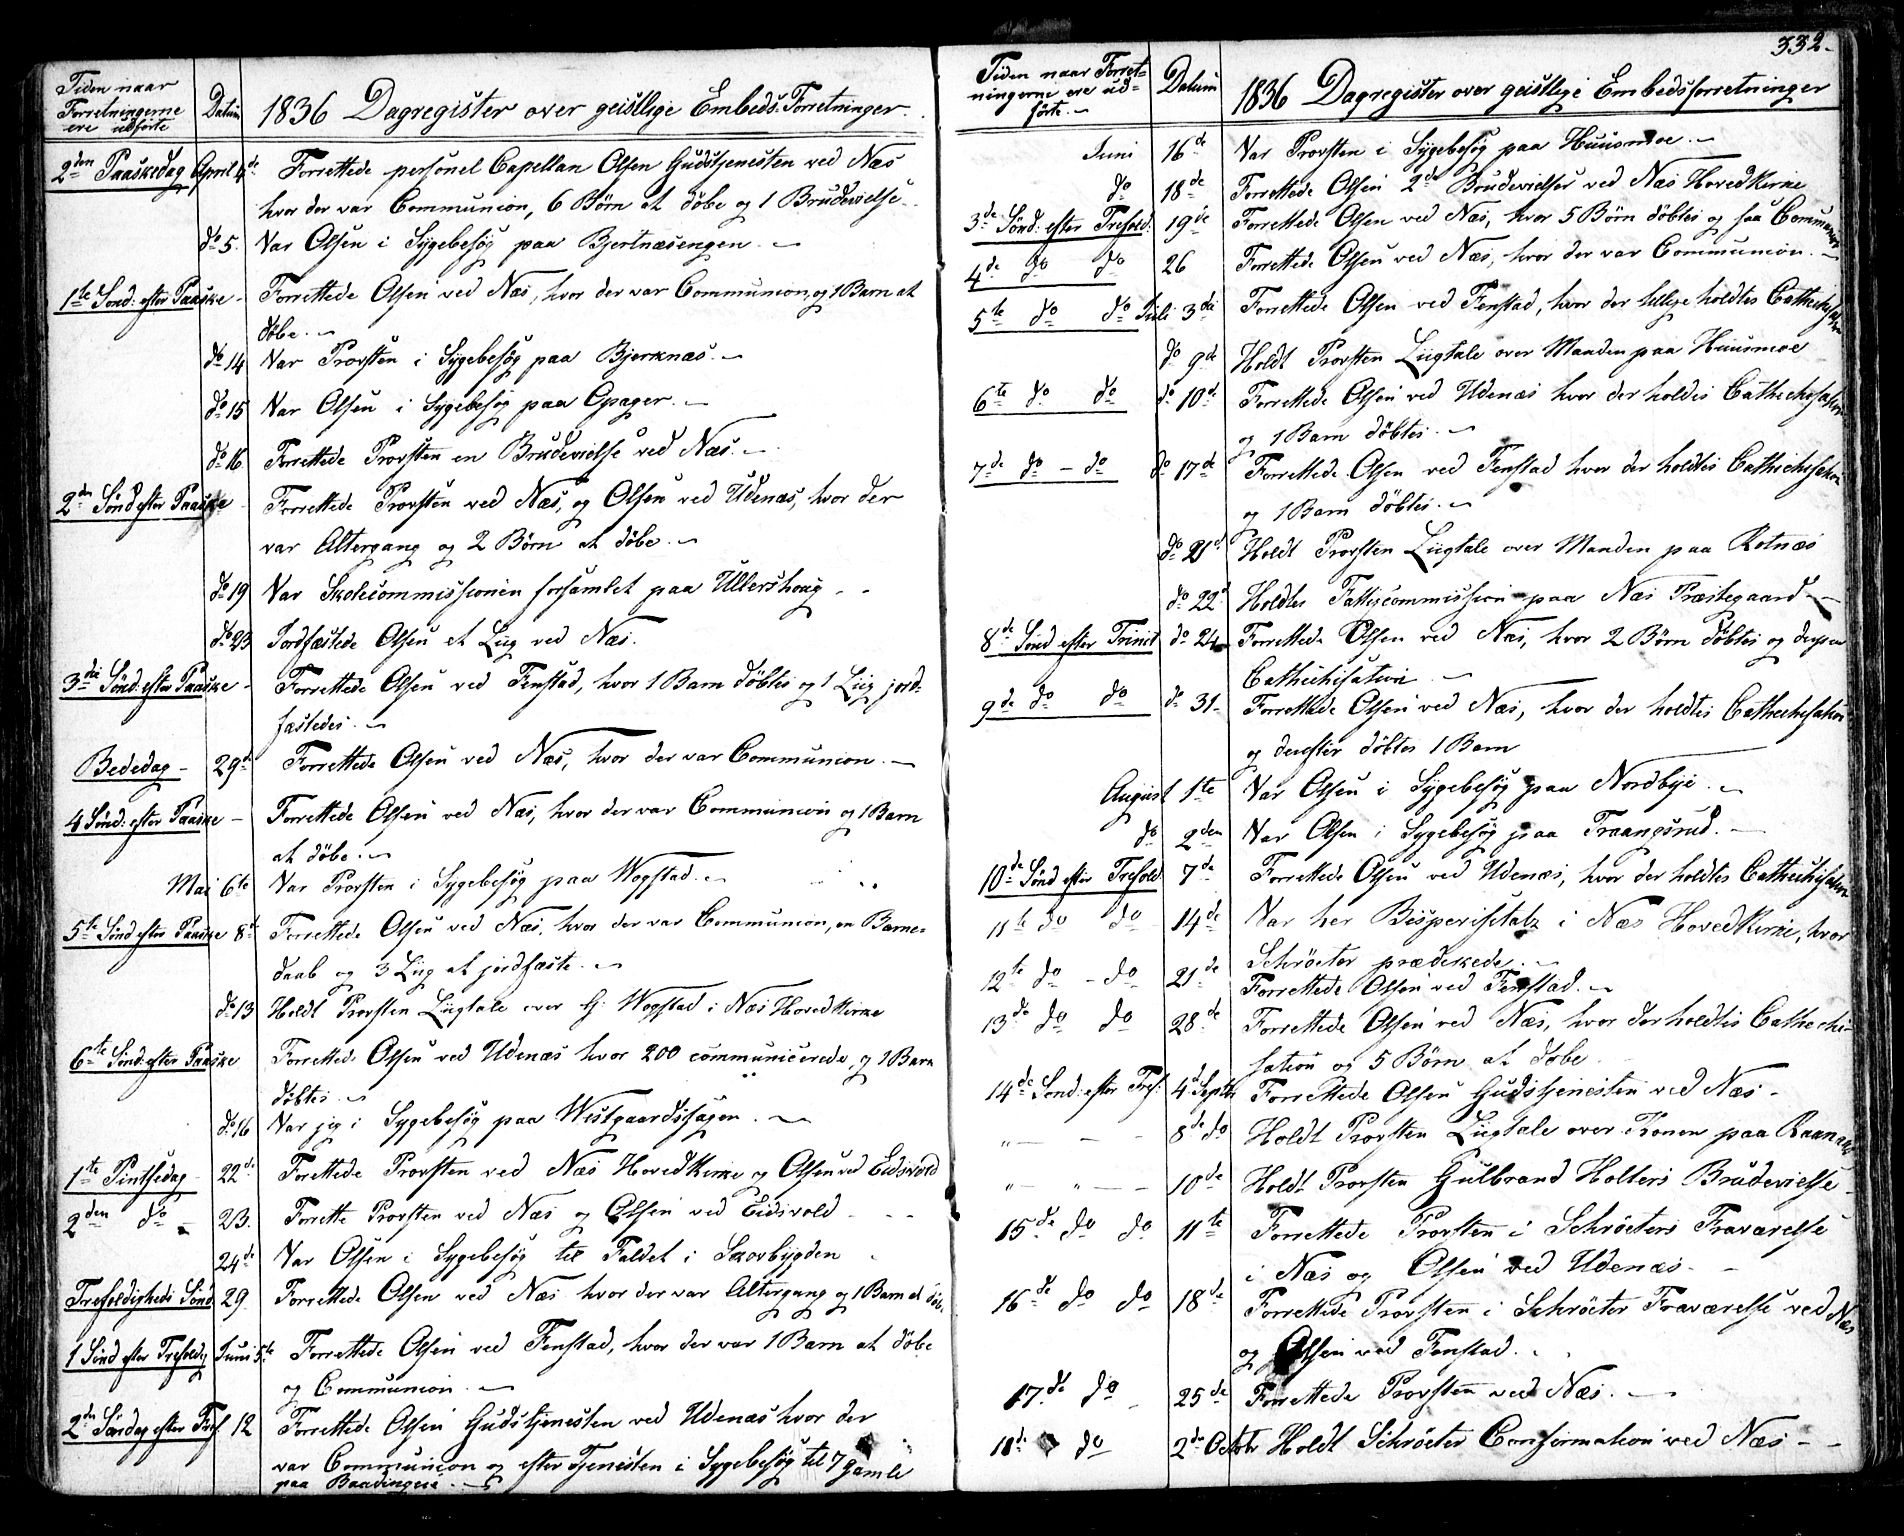 Tiden naar
Forretningerne
ere udførte
Datum
1836 Dagregister over geistlige Embeds Forretninger.
2den Paaskedag April 4de Forrettede personel Capellan Olsen Gudstjenesten ved Næs
hvor der var Communion, 6 Børn at døbe og 1 Brudevielse
do 5. Var Olsen i Sygebesøg paa Bjertnæsengen.
1te Sønd: efter Paaske - Forrettede Olsen ved Næs, hvor der var Communion, og 1 Barn at
døbe.
do 14 Var Provsten i Sygebesøg paa Bjerknæs.
do 15 Var Olsen i Sygebesøg paa Opager.
do 16 Forrettede Provsten en Brudevielse ved Næs.
2den Sønd efter Paaske Forrettede Provsten ved Næs, og Olsen ved Udenæs, hvor der
var Altergang og 2 Børn at døbe.
do 19 Var Skolecommissionen forsamlet paa Ullershoug
do 23 Jordfæstede Olsen et Liig ved Næs.
3die Sønd: efter Paaske - Forrettede Olsen ved Fenstad, hvor 1 Barn døbtes og 1 Liig jord-
fæstedes.
Bededag - 29de Forrettede Olsen ved Næs, hvor der var Communion.
4 Sønd: efter Paaske - Forrettede Olsen ved Næs, hvor der var Communion og 1 Barn
at døbe.
Mai 6te Var Provsten i Sygebesøg paa Wogstad.
5te Sønd efter Paaske 8de Forrettede Olsen ved Næs, hvor der var Communion, en Barne-
daab og 3 Liig at jordfæste.
do 13 Holdt Provsten Liigtale over G: Wogstad i Næs Hovedkirke
6te Sønd: efter Paaske Forrettede Olsen ved Udenæs hvor 200 communicerede og 1 Barn
døbtes.
do 16 Var jeg i Sygebesøg paa Westgaardshagen.
1te Pintsedag 22de Forettede Provsten ved Næs Hovedkirke og Olsen ved Eidsvold
2den do - 23. Forrette Provsten ved Næs og Olsen ved Eidsvold
24de Var Olsen i Sygebesøg til Faldet i Skovbygden
Trefoldigheds Sønd 29 Forrettede Olsen ved Næs hvor der var Altergang og 1 Barn at døb.
1 Sønd efter Trefoldig Juni 5te Forrettede Olsen ved Fenstad, hvor der var 1 Barn at døbe
og Communion.
2den Søndag efter Tref. 12 Forrettede Olsen Gudstjenesten ved Udenæs hvor der
var Communion og efter Tjenesten i Sygebesøg til 7 Gamle
paa Baadengene.
332.
Tiden naar Forret-
ningerne ere ud-
førte.
Datum
1836 Dagregister over geistlige Embedsforretninger
Juni 16de Var Provsten i Sygebesøg paa Huusmoe.
do 18de Forrettede Olsen 2de Brudevielser ved Næs Hovedkirke
3de Sønd: efter Trefold. 19de Forrettede Olsen ved Næs, hvor 5 Børn døbtes og saa Communion
4de do do 26 Forrettede Olsen ved Næs, hvor der var Communion.
5te do do Juli 3die Forrettede Olsen ved Fenstad, hvor der tillige holdtes Cathechisation
do 9de Holdt Provsten Liigtale over Manden paa Huusmoe
6te do do do 10de Forrettede Olsen ved Udenæs hvor der holdtes Cathechisation
og 1 Barn døbtes.
7de do - do do 17de Forrettede Olsen ved Fenstad hvor der holdtes Cathechisation
og 1 Barn døbtes.
do 21de Holdt Provsten Liigtale over Manden paa Rotnæs
do 22d Holdtes Fattigcommission paa Næs Præstegaard
8de Sønd efter Trinit do 24 Forrettede Olsen ved Næs, hvor 2 Børn døbtes og dessen
Cathechisation
9de do do do 31. Forrettede Olsen ved Næs, hvor der holdtes Cathechisation
og derefter døbtes 1 Barn
August 1te Var Olsen i Sygebesøg paa Nordbye.
do 2den Var Olsen i Sygebesøg paa Fraangsrud.
10de Sønd efter Trefold 7de Forrettede Olsen ved Udenæs, hvor der holdtes Cathechisation
11te do do 14de Var her Bispevisitatz i Næs Hovedkirke, hvor
Schrøeter prædikede.
12te do - do 21de Forrettede Olsen ved Fenstad.
13de do do 28de Forrettede Olsen ved Næs, hvor der holdtes Cathechi-
sation og 5 Børn at døbe
14de Sønd: efter Tref. 4d Septbr Forrettede Olsen Gudstjenesten ved Næs -
"— — — 8de do Holdt Provsten Liigtale over Konen paa
"— "— — 10de Holdt Provsten Gulbrand Holters Brudevielse
15de do do 11te Forrettede Provsten i Schrøeters Fraværelse
i Næs og Olsen ved Udenæs.
16de do do 18de Forrettede Provsten i Schrøeter Fraværelse ved Næs
og Olsen ved Fenstad.
17de do 25de Forrettede Provsten ved Næs.
18de do 2de Octobr Holdt Schrøeter Confirmation ved Næs - -